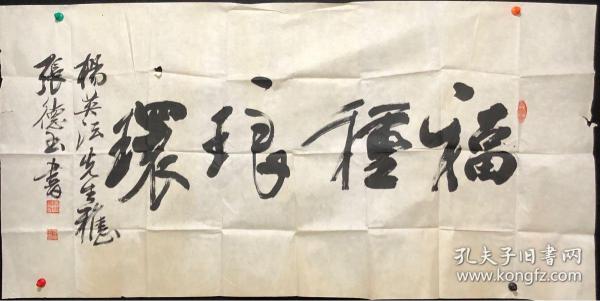 福種琅環
楊英法先生雅
張德玉書
孔夫子旧书网
www.kongfz.com